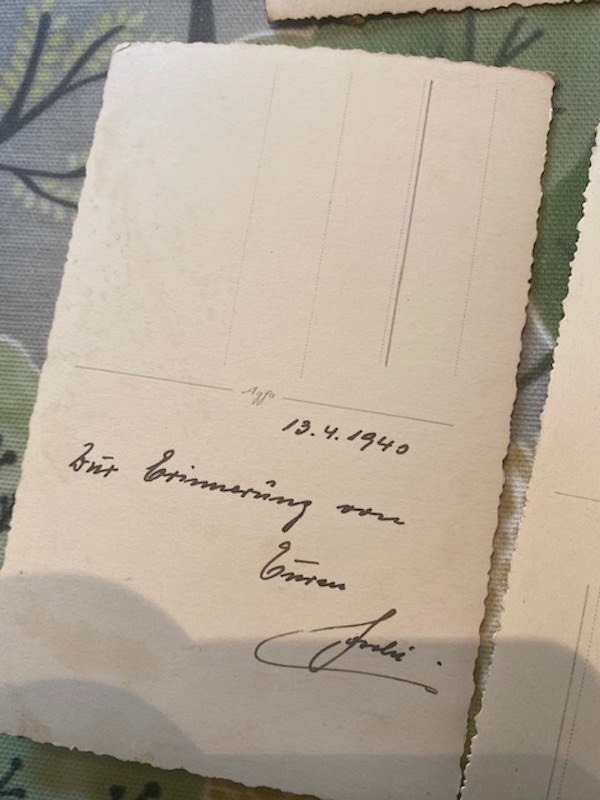 Agfa
13.4.1940
Zur Erinnerung von
Euren